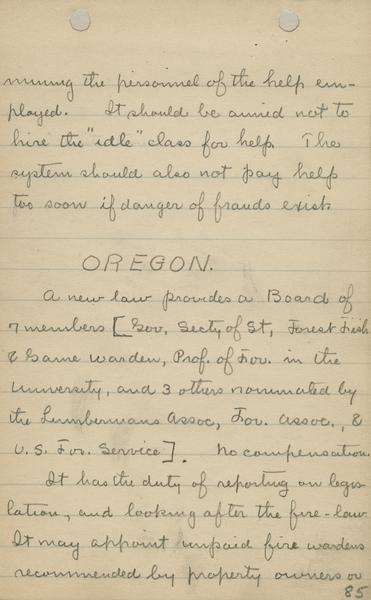 mining the personnel of the help em-
ployed. It should be aimed not to
hire the "idle" class for help. The
system should also not pay help
too soon if danger of frauds exist.
OREGON.
A new law provides a Board of
7 members [Gov, Secty of St, Forest Fish
& Game Warden, Prof. of For. in the
University, and 3 others nominated by
the Lumbermans Assoc, For. Assoc., &
U.S. For. Service]. No compensation.
It has the duty of reporting on legis-
lation, and looking after the fire-law.
It may appoint unpaid fire wardens
recommended by property owners or
85